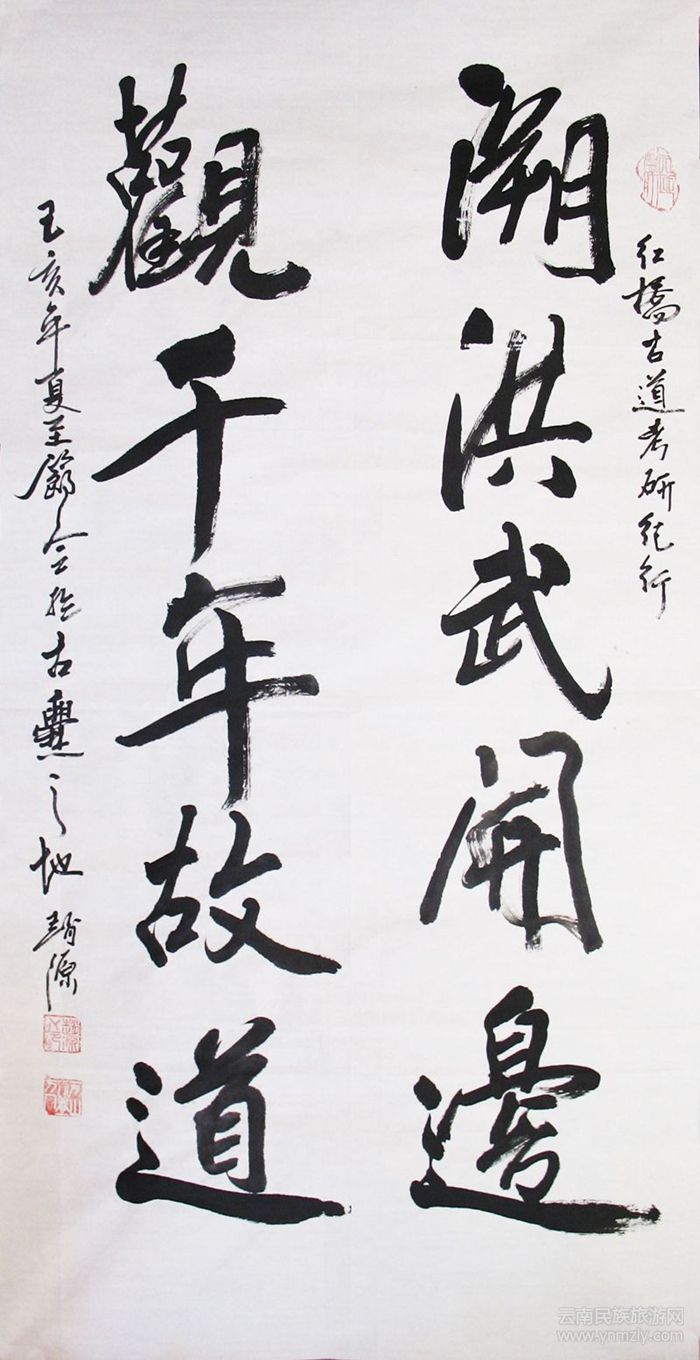 红橋古道考研纪行
溯洪武開邊
觀千年故道
亥年夏至節令於古爨之地
云南民族旅游网
www.ynmzly.com